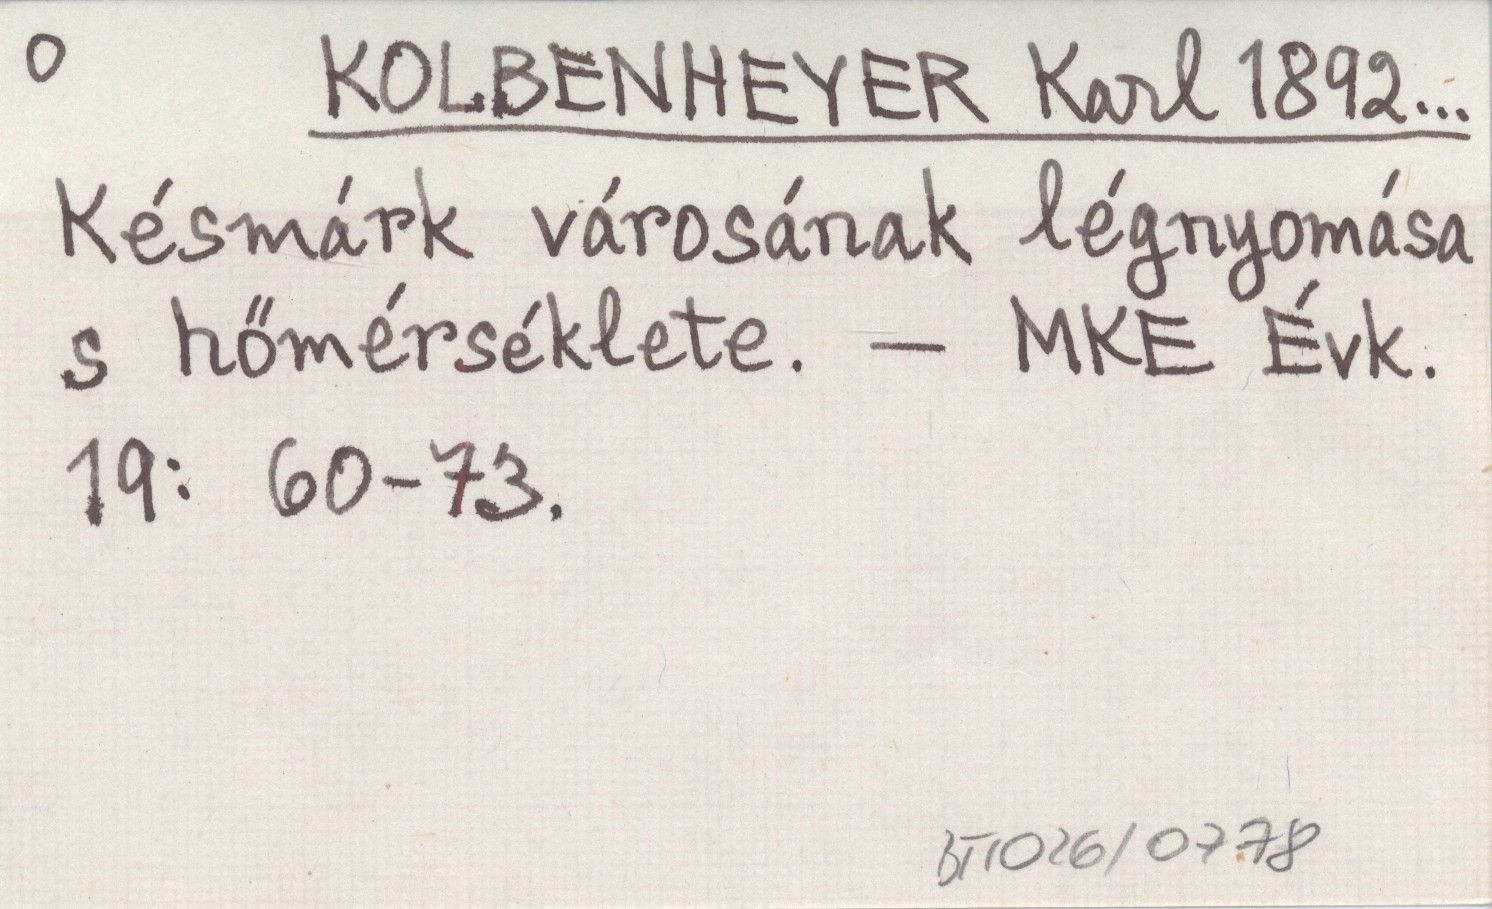 O KOLBENHEYER Karl 1892...
Késmárk városának légnyomása
s hőmérséklete. — MKE Évk.
19: 60-73.
BTI026/0778